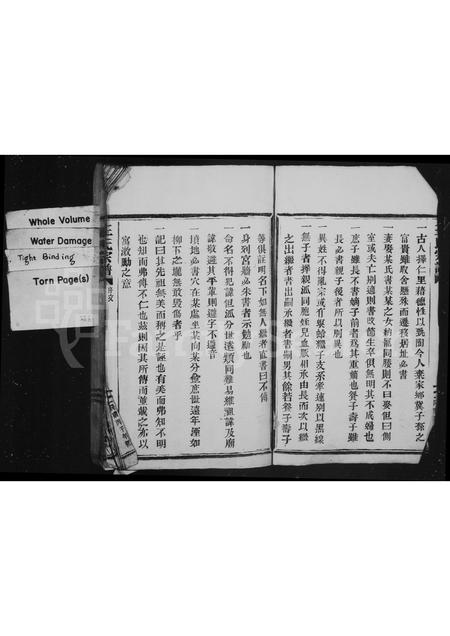 Whole Volume
Water Damage
Tight Binding
Torn Page(s)
古人擇仁里藉德性以為閭今人棄家鄉冀子孫之
富貴雖取舍懸殊而遷移居址必書
妻娶某氏書某某之女納寵同腰則不曰娶但曰側
室或夫亡別適則書改醮生卒俱無明其不成婦也
庶子雖長不書嫡子前者為其重嫡也養子壽子雖
長必書親子後者所以別異也
一異姓不得亂宗或有娶螟蛉子支系牽連別以黑線
一無子者擇親派同胞姪兒血脈相承由長而次以繼
之出繼者書出嗣承繼者書嗣男其餘若養子壽子
等俱註明名下如無人繼者直書曰不傳
一身列宮牆必朱書者示勉勵也
一命名不得犯諱但派分世遠類同難易維祖諱及廟
諱敬謹避其平輩則避字不避音
一墳地必書穴在某處坐某向某分金庶世遠年湮如
柳下之壟無敢毀傷者乎
一記曰其先祖無美而稱之是誣也有美而弗知不明
也知而弗傳不仁也茲則因其所傳而並載之亦以
寓激勸之意